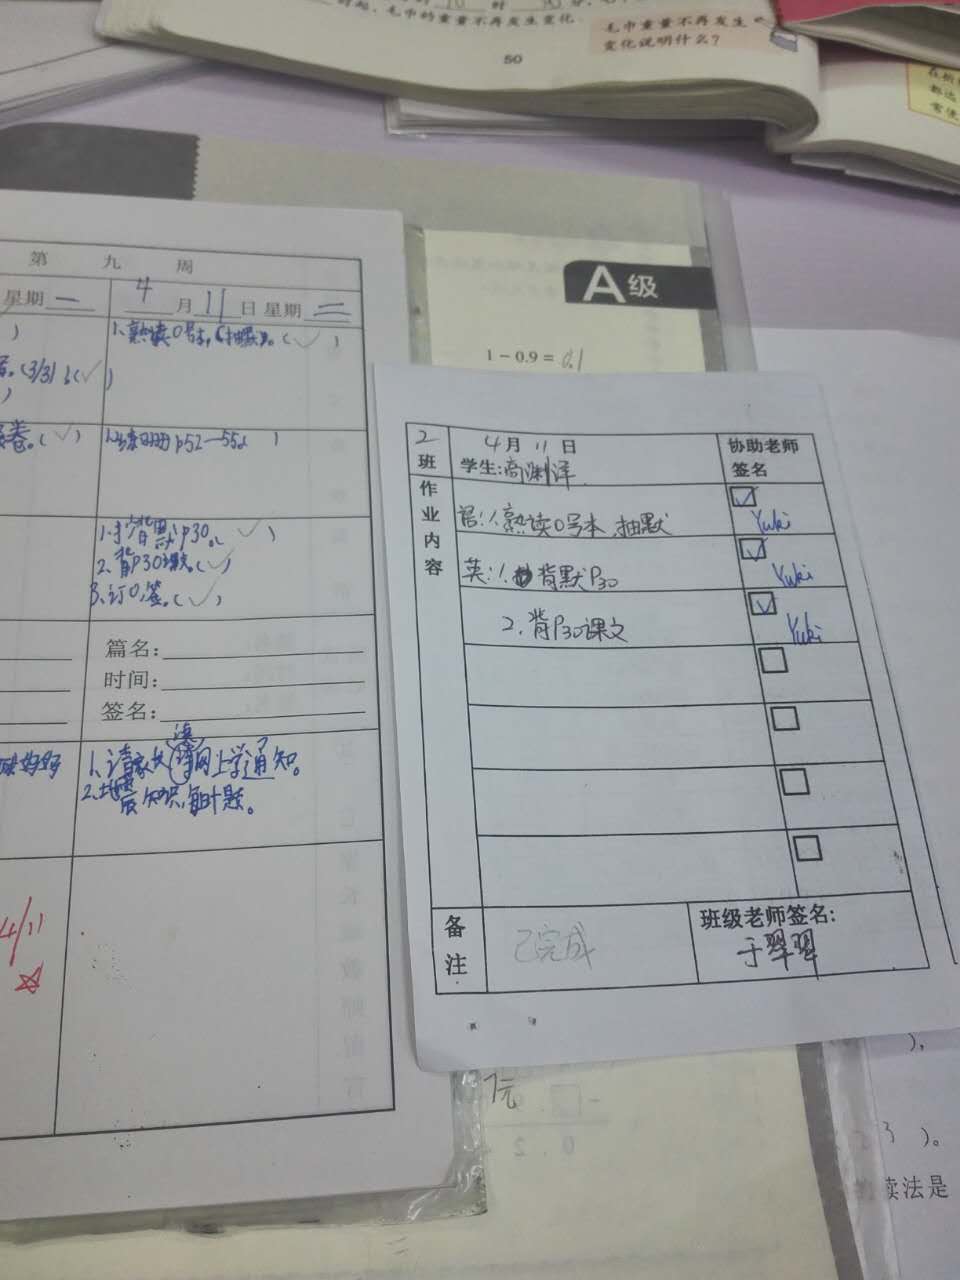 毛巾的重量不再发生变化
毛巾重量不再发生
变化说明什么?
50
第 九 周
星期二
4月11日星期三
1、熟读0号本,抽默。(✓)
(3/31)(✓)
卷。(✓)
p52—55。( )
p30。(✓)
2、背P30课文。(✓)
3、订0签。(✓)
篇名:
时间:
签名:
1、请家长 网上学通知。
2、地震知识 题。
4/11
A级
1-0.9=0.1
2班
4月11日
学生:高渊洋
协助老师
签名
作业内容
语:1、熟读0号本、抽默
Yuki
英:1、背默P30
Yuki
2、背P30课文
Yuki
备注
已完成
班级老师签名:
于翠翠
元
0.2
3 )。
读法是